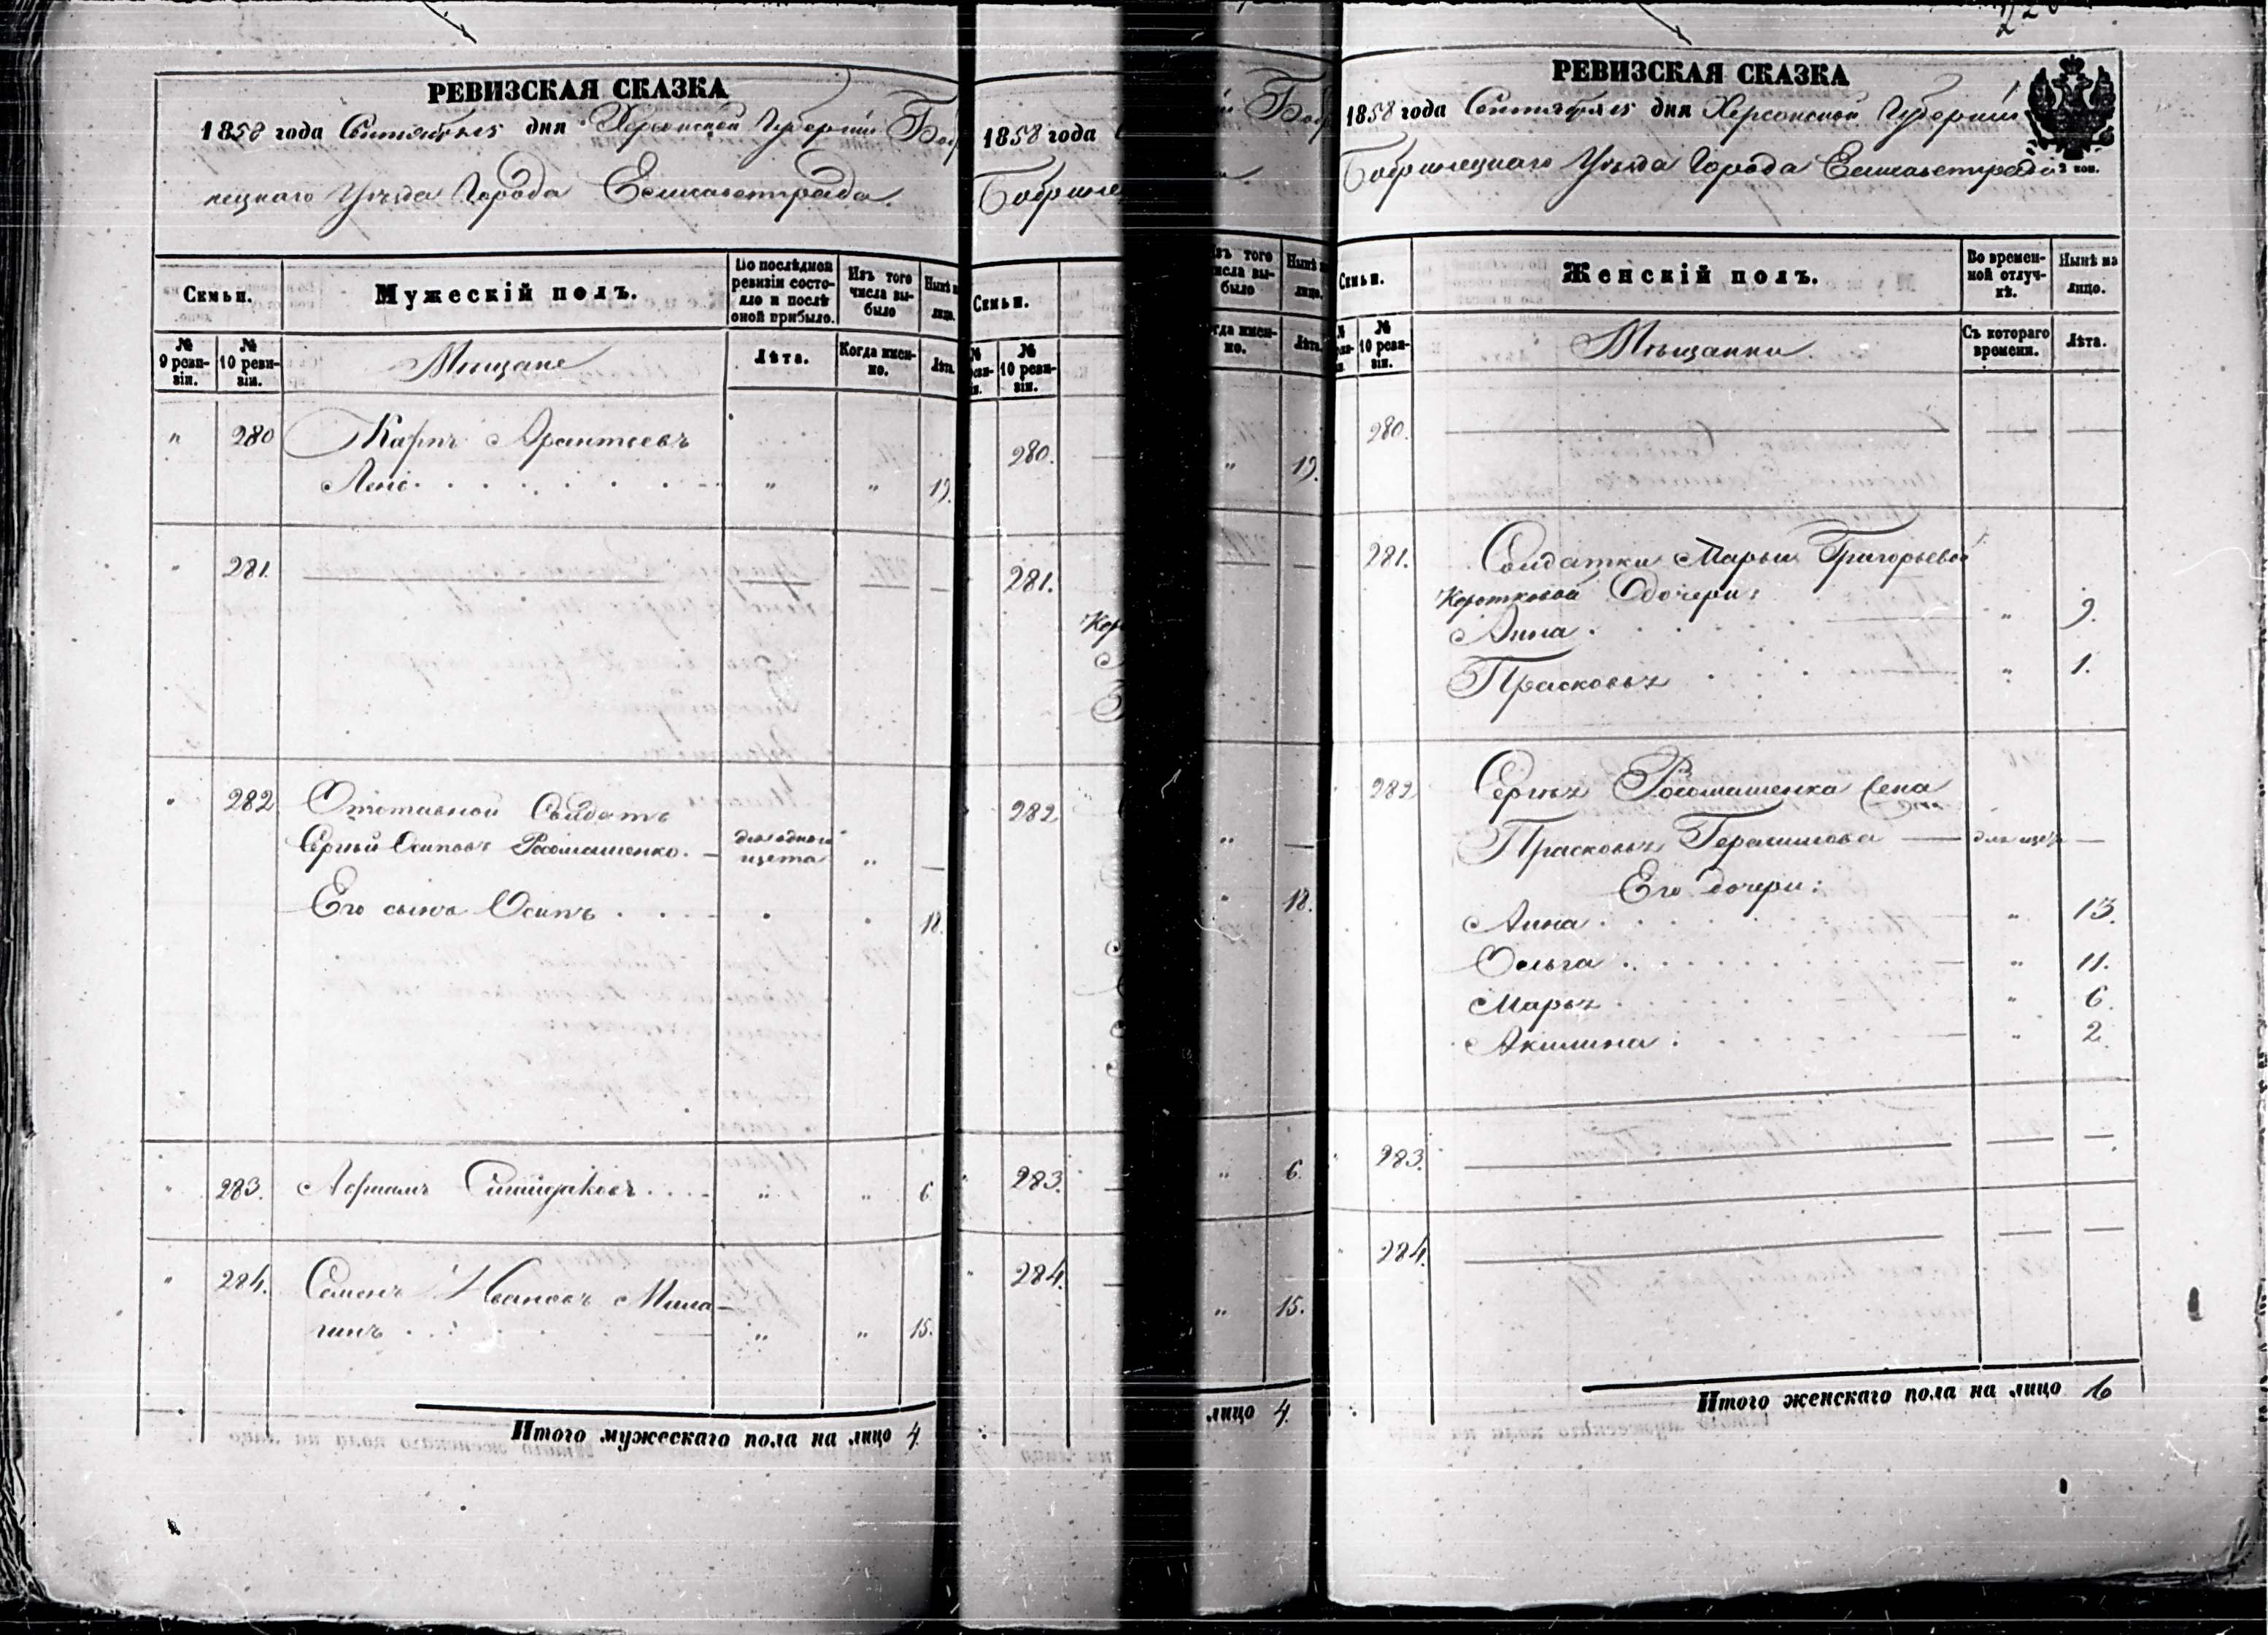 РЕВИЗСКАЯ СКАЗКА
1858 года Сентября 15 дня Херсонской Губерніи Боб
ринецкаго Уѣзда Города Елисаветграда.
Семьи.
Мужескій полъ.
По послѣдней ревизіи состояло и послѣ оной прибыло.
Изъ того числа выбыло
Нынѣ на лицо.
№ 9 ревизіи.
№ 10 ревизіи.
Мѣщане
Лѣта.
Когда именно.
Лѣта.
" 280 Карпъ
" " 19.
" 281.
" 282 Отставной Солдатъ
Сергѣй Осиповъ для одного щета "
Его сынъ Осипъ 18.
" 283. " " 6
" 284. Семенъ Ивановъ
" " 15.
Итого мужескаго пола на лицо 4.
1858 года
Бобрине
Семьи.
№ 10 ревизіи.
280.
281.
282
283.
284.
Боб
Изъ того числа выбыло
Нынѣ на лицо.
когда именно.
Лѣта.
" 19.
"
" 18.
" 6
" 15.
лицо 4.
РЕВИЗСКАЯ СКАЗКА
1858 года Сентября 15 дня Херсонской Губерніи
Бобринецкаго Уѣзда Города Елисаветграда
2 коп.
Семьи.
Женскій полъ.
Во временной отлучкѣ.
Нынѣ на лицо.
№ 10 ревизіи.
Мѣщанки.
Съ котораго времени.
Лѣта.
280.
281. Солдатки Марьи Григорьевой
Коротковой дочери:
Анна " 9.
Прасковья " 1.
282 Сергѣя жена
Прасковья Герасимова для щета
Его дочери:
Анна " 13.
Ольга " 11.
Марья " 6.
Акилина " 2.
283.
284.
Итого женскаго пола на лицо 6